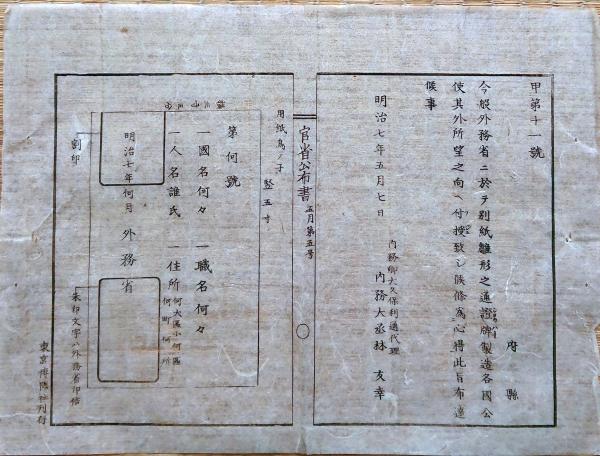 甲第十一號
府縣
今般外務省ニ於テ別紙雛形之通證牌製造各國公
使其外所望之向ヘ付授致シ候條爲心得此旨布達
候事
明治七年五月七日
内務卿大久保利通代理
内務大丞林友幸
官省公布書 五月第五号
用紙鳥ノ子
竪五寸
第何號
一國名何々 一職名何々
一人名誰氏 一住所 何大區小何區 何町何所
明治七年何月 外務省
割印
朱印文字ハ外務省印信
東京博聞社刊行